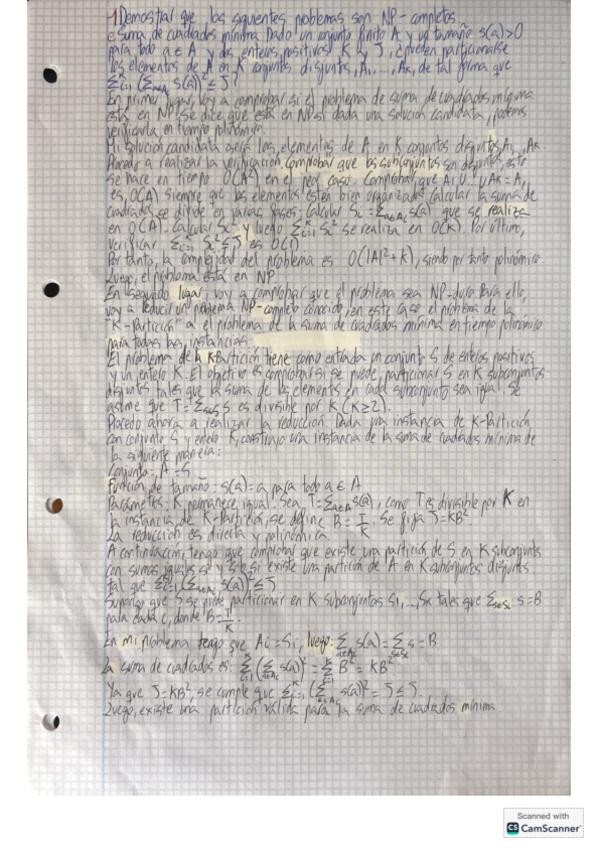 1Demostrar que los siguientes problemas son NP-completos.
e. Suma de cuadrados mínima. Dado un conjunto finito A y un tamaño s(a)>0
para todo a ∈ A y dos enteros positivos K y J, ¿pueden particionarse
los elementos de A en K conjuntos disjuntos, A1,...,Ak, de tal forma que
Σ(Σ s(a))² ≤ J?
En primer lugar, voy a comprobar si el problema de suma de cuadrados mínima
está en NP. Se dice que está en NP si dada una solución candidata, podemos
verificarla en tiempo polinómico.
Mi solución candidata será los elementos de A en K conjuntos disjuntos A1,..,Ak.
Procedo a realizar la verificación. Comprobar que los subconjuntos son disjuntos, esto
se hace en tiempo O(A²) en el peor caso. Comprobar que A1 U...U Ak = A,
es O(A) siempre que los elementos estén bien organizados. Calcular la suma de
cuadrados se divide en varias fases: Calcular Si = Σa∈Ai s(a) que se realiza
en O(A). Calcular Si² y luego Σ Si² se realiza en O(K). Por último,
verificar Σ Si² ≤ J es O(1).
Por tanto, la complejidad del problema es O(|A|²+K), siendo por tanto polinómico.
Luego, el problema está en NP.
En segundo lugar, voy a comprobar que el problema sea NP-duro. Para ello,
voy a reducir un problema NP-completo conocido, en este caso el problema de la
"K-Partición" a el problema de la suma de cuadrados mínima en tiempo polinómico
para todas las instancias.
El problema de la K-Partición tiene como entrada un conjunto S de enteros positivos
y un entero K. El objetivo es comprobar si se puede particionar S en K subconjuntos
disjuntos tales que la suma de los elementos en cada subconjunto sea igual. Se
asume que T=Σs∈S s es divisible por K (K≥2).
Procedo ahora a realizar la reducción. Dada una instancia de K-Partición,
con conjunto S y entero K, construyo una instancia de la suma de cuadrados mínima de
la siguiente manera:
Conjunto: A=S
Función de tamaño: s(a)=a para todo a ∈ A
Parámetros: K permanece igual. Sea T=Σa∈A s(a), como T es divisible por K en
la instancia de K-Partición, se define B = T/K. Se fija J=KB².
La reducción es directa y polinómica.
A continuación, tengo que comprobar que existe una partición de S en K subconjuntos
con sumas iguales si y solo si existe una partición de A en K subconjuntos disjuntos
tal que Σ(Σa∈Ai s(a))² ≤ J.
Supongo que S se puede particionar en K subconjuntos S1,...,Sk tales que Σs∈Si s=B
para cada i, donde B=T/K.
En mi problema tengo que Ai=Si, luego: Σ s(a) = Σ s = B
La suma de cuadrados es: Σ(Σ s(a))² = Σ B² = KB²
Ya que J=KB², se cumple que Σ(Σ s(a))² = J ≤ J.
Luego, existe una partición válida para la suma de cuadrados mínima.
Scanned with
CS CamScanner